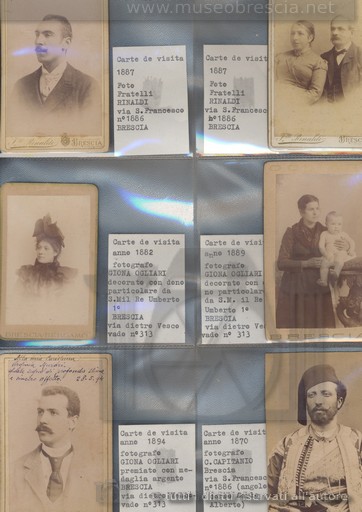 www.museobrescia.net
Carte de visita
1887
Foto
Fratelli
RINALDI
via S.Francesco
n°1886
BRESCIA
Carte de visita
1887
Foto
Fratelli
RINALDI
via S.Francesco
n°1886
BRESCIA
BRESCIA
Carte de visita
anno 1882
fotografo
GIONA OGLIARI
decorato con
particolare da
S.M il Re Umberto
1°
BRESCIA
via dietro Vesco
vado n°313
Carte de visita
anno 1889
fotografo
GIONA OGLIARI
decorato con
ne particolare
da S.M. il Re
Umberto 1°
BRESCIA
via dietro Ve
vado n°313
Carte de visita
anno 1894
fotografo
GIONA OGLIARI
premiato con me-
daglia argento
BRESCIA
Carte de visita
anno 1870
fotografo
C.CAPITANIO
Brescia
via S.Francesco
n°1886 (angolo
Alberto)
Tutti i diritti riservati all'autore